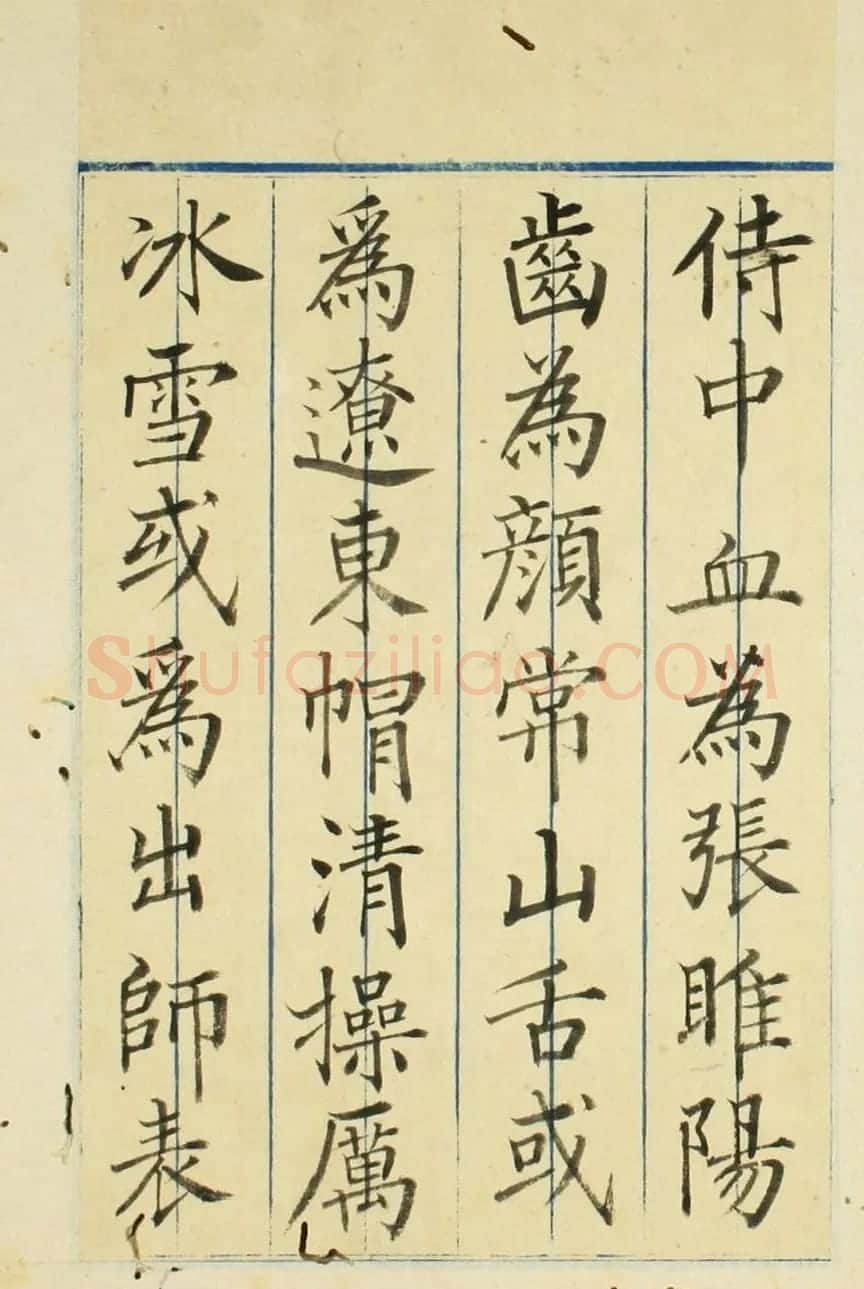 侍中血為張睢陽
齒為顏常山舌或
爲遼東帽清操厲
冰雪或爲出師表
Shufaziliao.COM